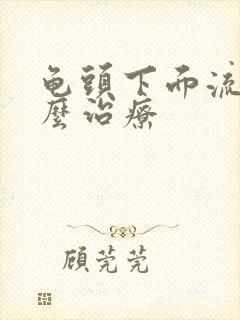 龟頭下而流
麼治療
顾莞莞